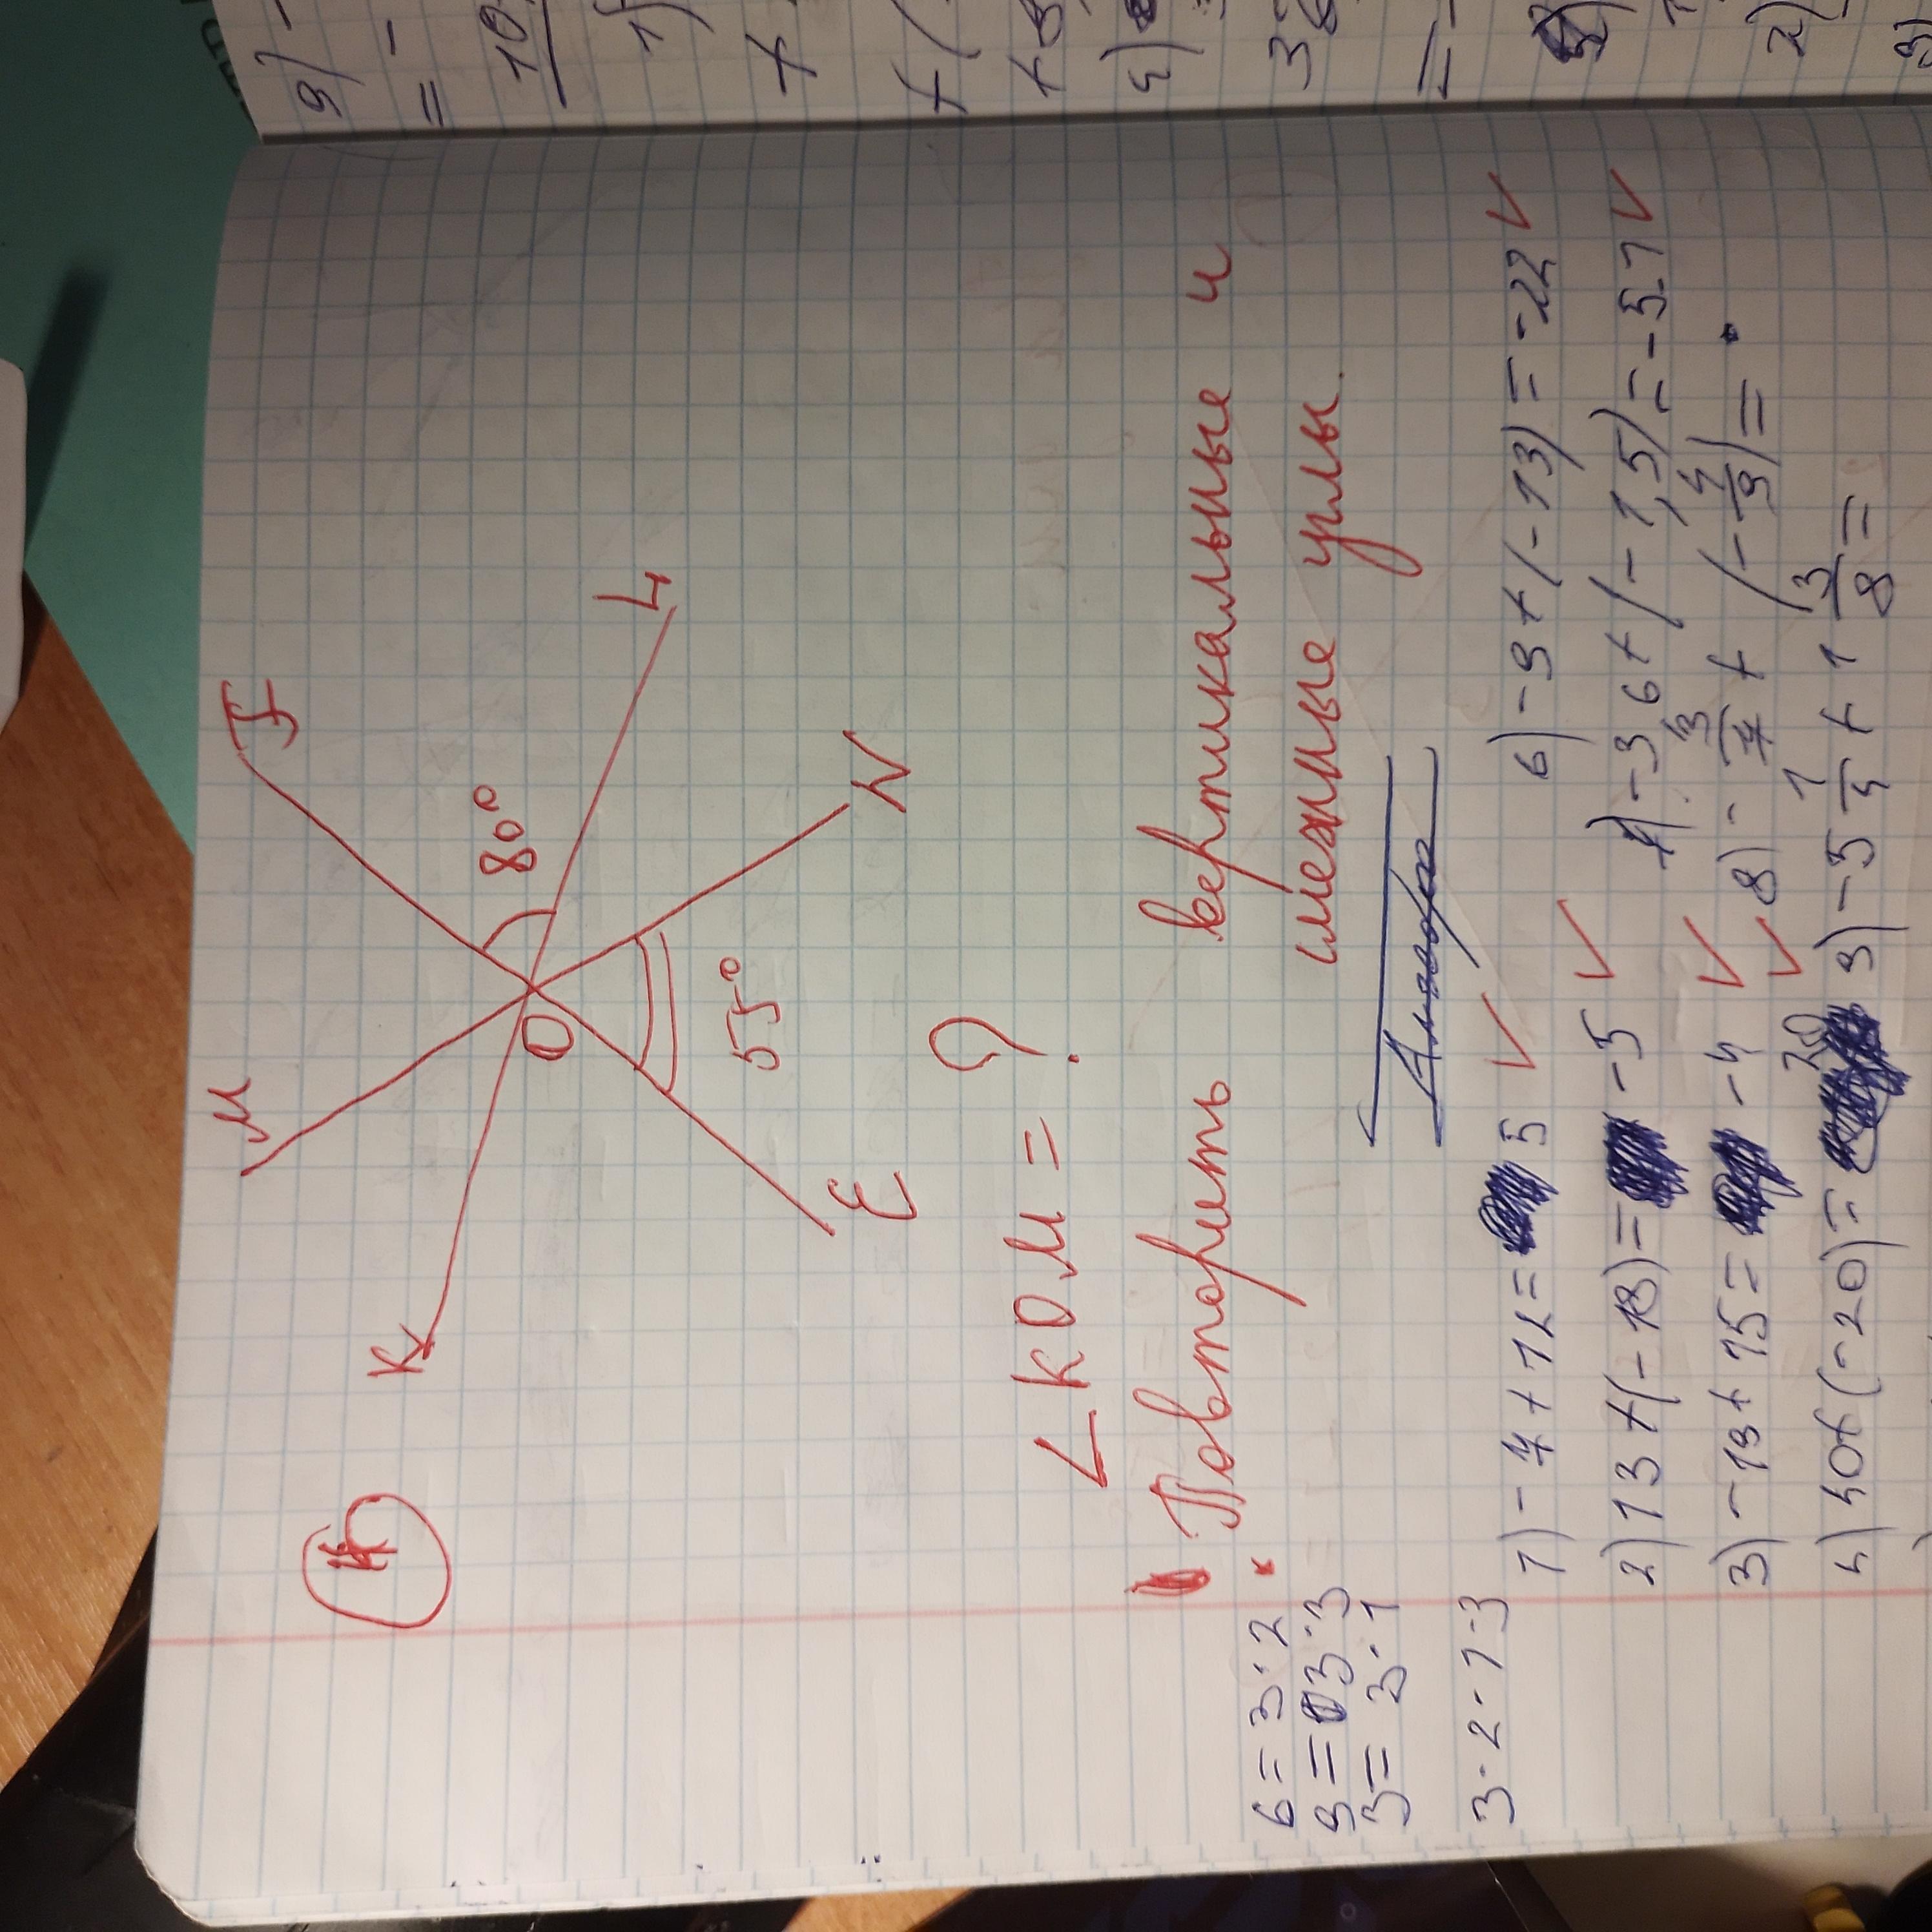 4
M
F
K
O
80°
L
55°
E
N
∠KOM = ?
Повторить вертикальные и
смежные углы.
6 = 3·2
9 = 3·3
3 = 3·1
3·2·1·3
1) -7 + 12 = 5
2) 13 + (-18) = -5
3) -19 + 15 = -4
4) 40 + (-20) = 20
6) -9 + (-13) = -22
7) -3,6 + (-1,5) = -5,1
8) -3/7 + (-4/9) =
9) -5 1/4 + 1 3/8 =
9) -
= -
10
1)
+
+ (
4)
=
2)
3)